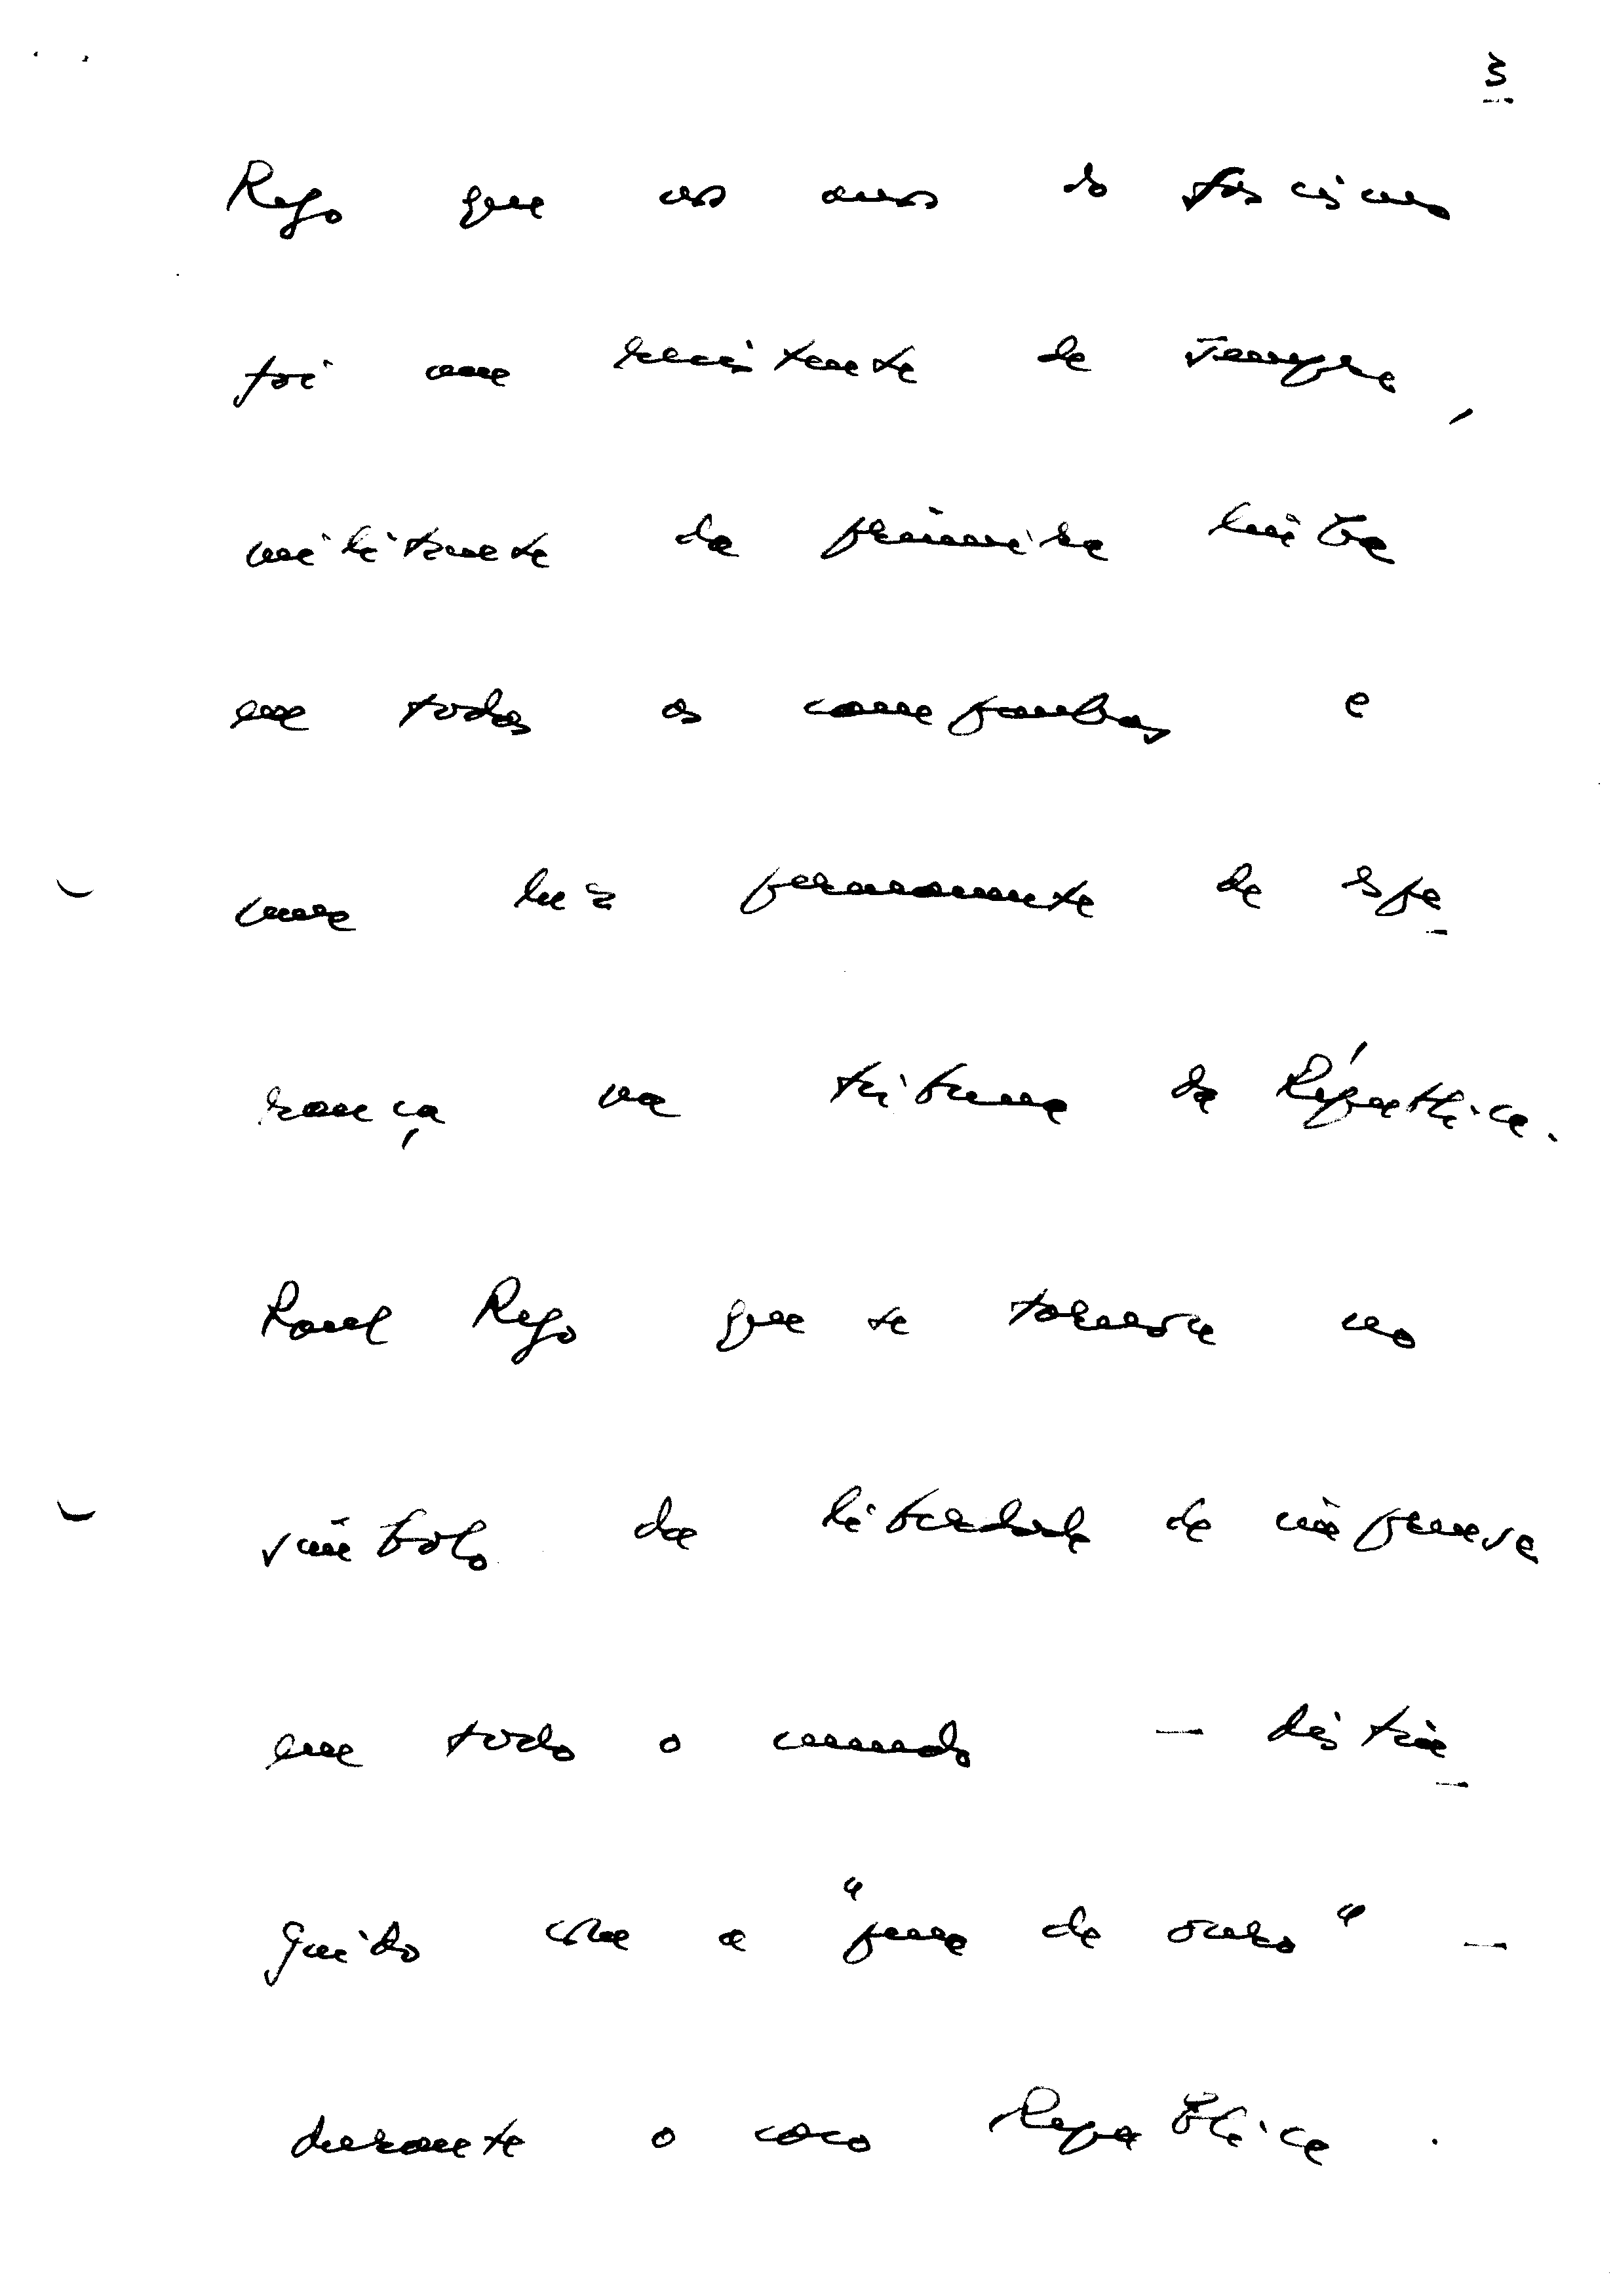 3
Rego que os anos do fascismo
foi um resistente de sempre,
militante da primeira linha
em todos os combates e
uma luz permanente de espe-
rança na tribuna da República.
Raul Rego que se tornou no
símbolo da liberdade de imprensa
em todo o mundo — distin-
guido com a "pena de ouro" —
durante o caso República.